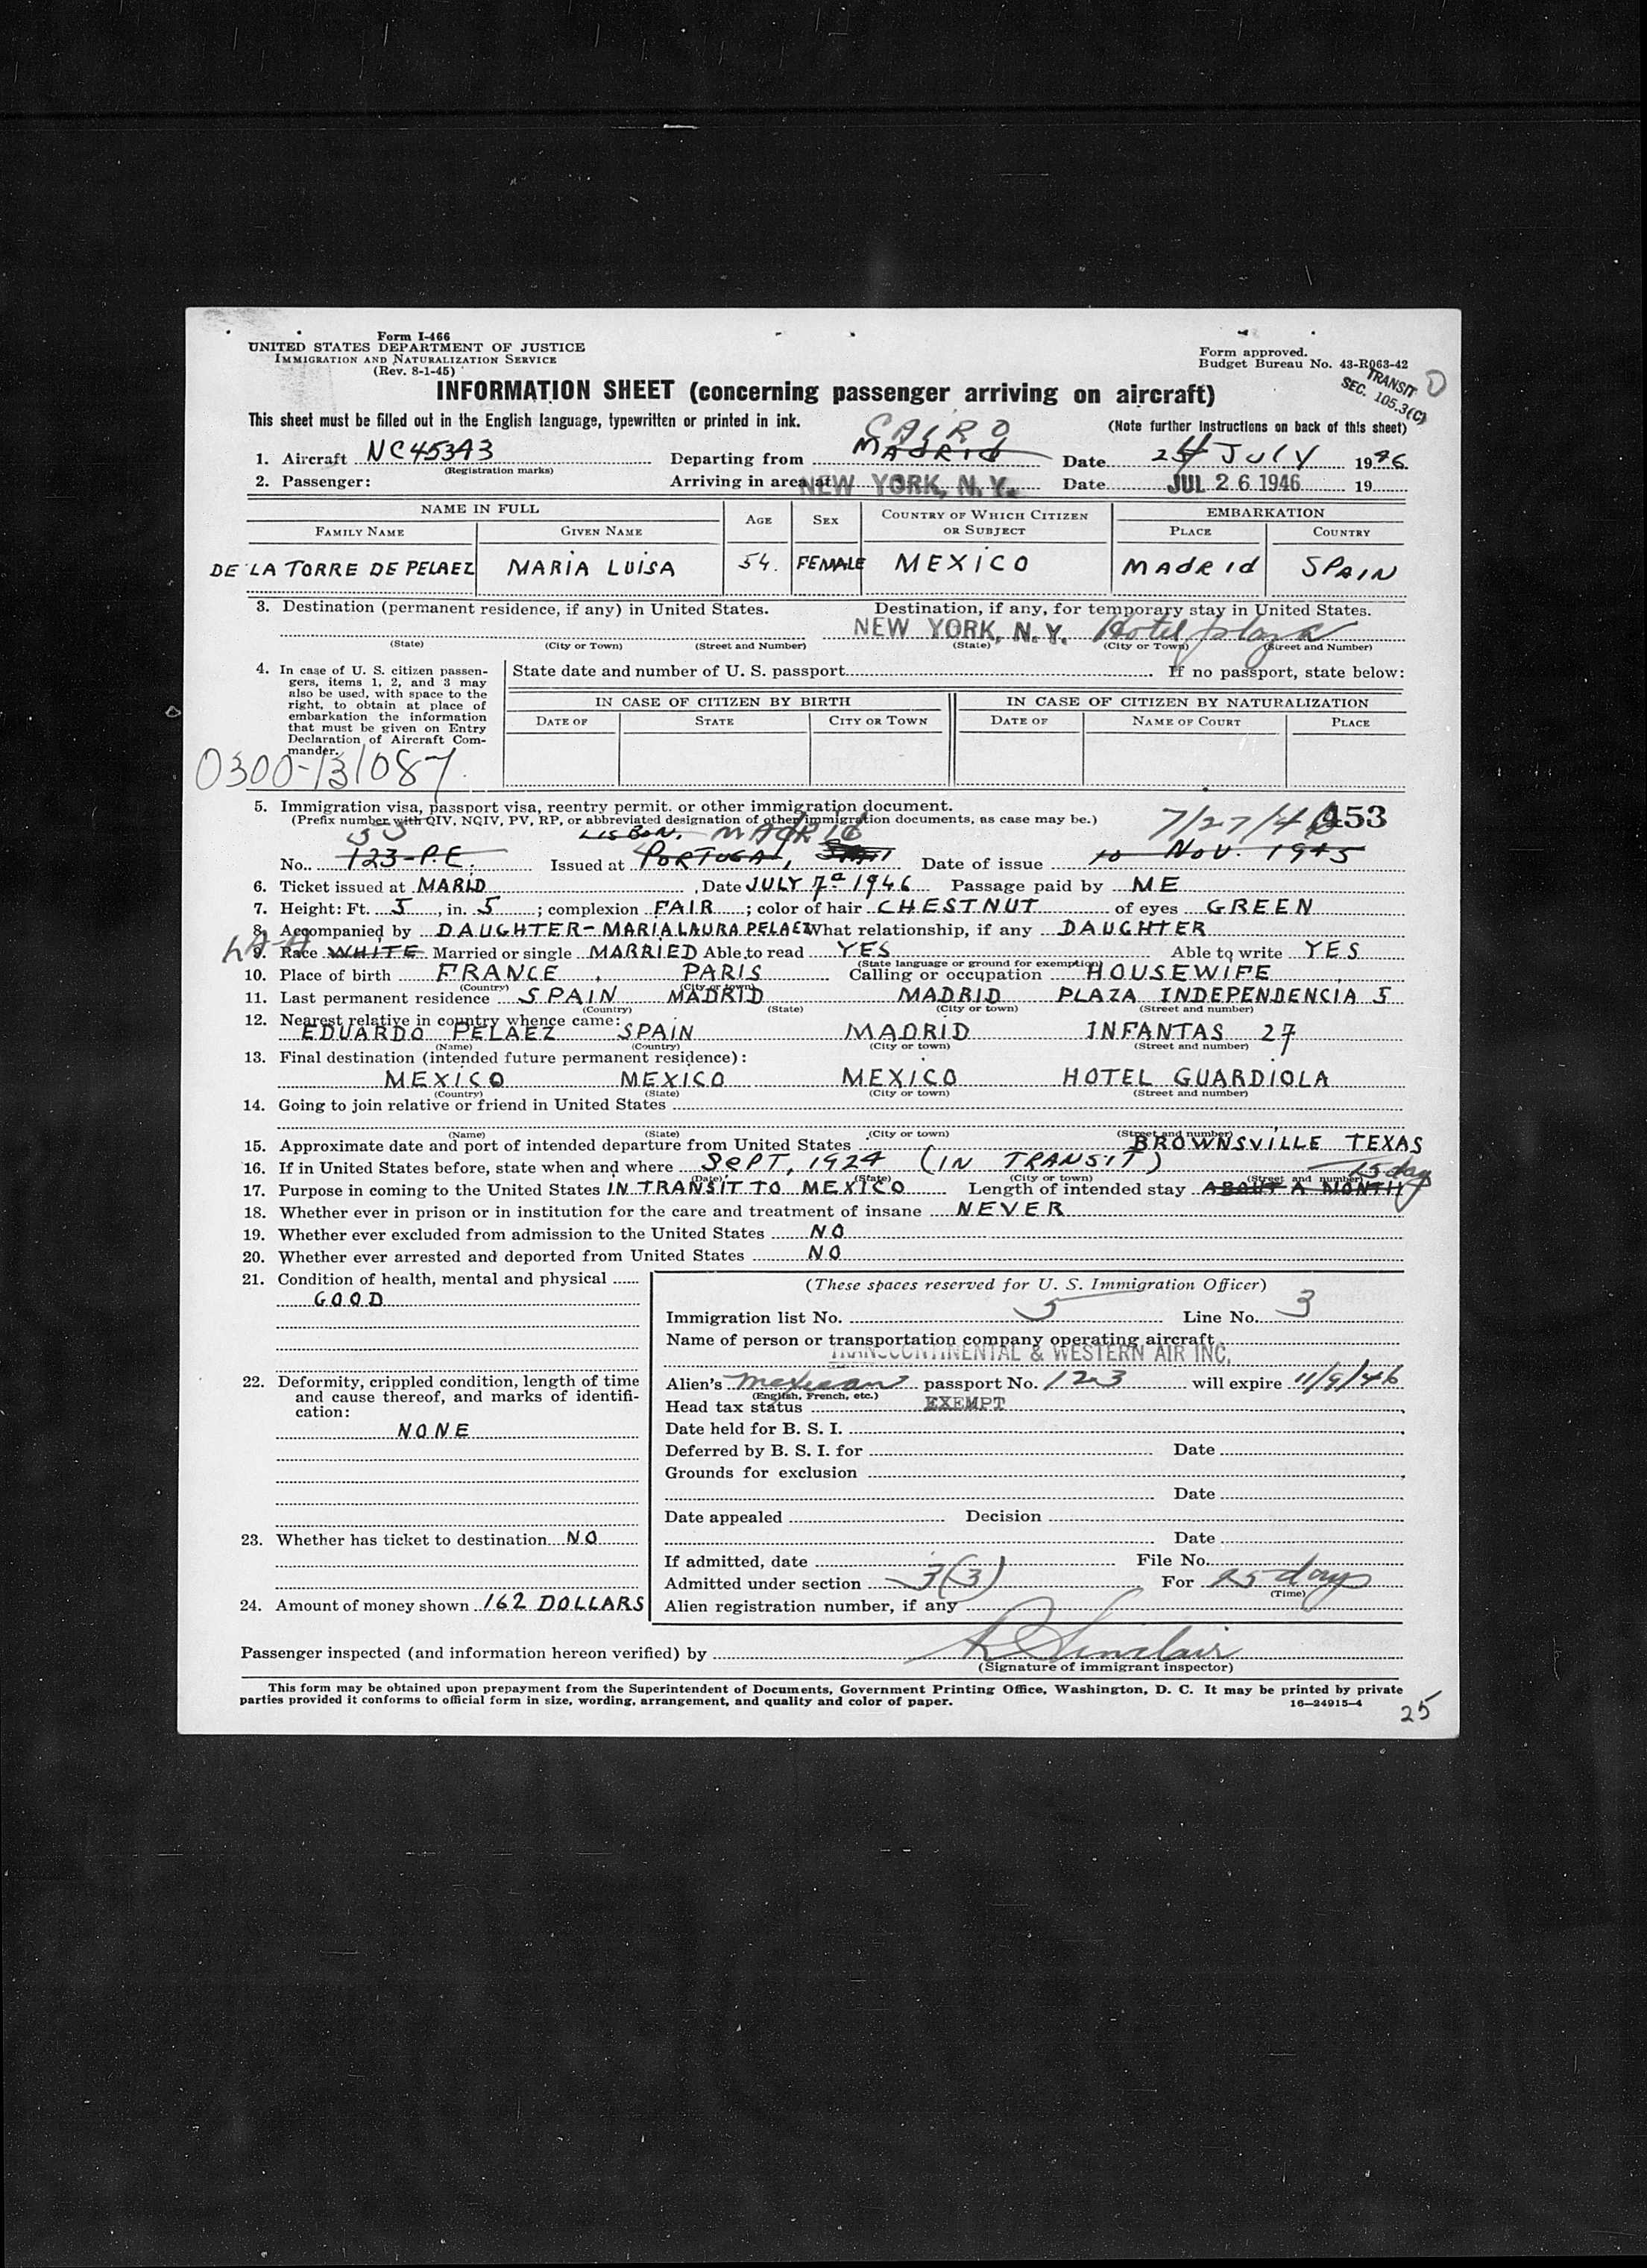 Form I-466
UNITED STATES DEPARTMENT OF JUSTICE
IMMIGRATION AND NATURALIZATION SERVICE
(Rev. 8-1-45)
Form approved.
Budget Bureau No. 43-R063-42
TRANSIT
SEC. 105.3(C)
INFORMATION SHEET (concerning passenger arriving on aircraft)
This sheet must be filled out in the English language, typewritten or printed in ink.
(Note further instructions on back of this sheet)
CAIRO
1. Aircraft NC45343 Departing from MADRID Date 24 JULY 1946
(Registration marks)
2. Passenger: Arriving in area at NEW YORK, N. Y. Date JUL 26 1946 19
NAME IN FULL AGE SEX COUNTRY OF WHICH CITIZEN OR SUBJECT EMBARKATION
FAMILY NAME GIVEN NAME PLACE COUNTRY
DE LA TORRE DE PELAEZ MARIA LUISA 54. FEMALE MEXICO MADRID SPAIN
3. Destination (permanent residence, if any) in United States. Destination, if any, for temporary stay in United States.
NEW YORK, N. Y. Hotel plaza
(State) (City or Town) (Street and Number) (State) (City or Town) (Street and Number)
4. In case of U. S. citizen passengers, items 1, 2, and 3 may also be used, with space to the right, to obtain at place of embarkation the information that must be given on Entry Declaration of Aircraft Commander.
State date and number of U. S. passport If no passport, state below:
IN CASE OF CITIZEN BY BIRTH IN CASE OF CITIZEN BY NATURALIZATION
DATE OF STATE CITY OR TOWN DATE OF NAME OF COURT PLACE
0300-131087
5. Immigration visa, passport visa, reentry permit, or other immigration document.
(Prefix number with QIV, NQIV, PV, RP, or abbreviated designation of other immigration documents, as case may be.)
7/27/46 453
LISBON, MADRID
No. 123-P.E. Issued at PORTUGAL, Date of issue 10 NOV. 1945
6. Ticket issued at MARID Date JULY 7ª 1946 Passage paid by ME
7. Height: Ft. 5, in. 5; complexion FAIR; color of hair CHESTNUT of eyes GREEN
8. Accompanied by DAUGHTER-MARIA LAURA PELAEZ What relationship, if any DAUGHTER
9. Race WHITE Married or single MARRIED Able to read YES Able to write YES
(State language or ground for exemption)
10. Place of birth FRANCE, PARIS Calling or occupation HOUSEWIFE
(Country) (City or town)
11. Last permanent residence SPAIN MADRID MADRID PLAZA INDEPENDENCIA 5
(Country) (State) (City or town) (Street and number)
12. Nearest relative in country whence came:
EDUARDO PELAEZ SPAIN MADRID INFANTAS 27
(Name) (Country) (City or town) (Street and number)
13. Final destination (intended future permanent residence):
MEXICO MEXICO MEXICO HOTEL GUARDIOLA
(Country) (State) (City or town) (Street and number)
14. Going to join relative or friend in United States
(Name) (State) (City or town) (Street and number)
15. Approximate date and port of intended departure from United States BROWNSVILLE TEXAS
16. If in United States before, state when and where SEPT, 1924 (IN TRANSIT)
(Date) (State) (City or town) (Street and number)
17. Purpose in coming to the United States IN TRANSIT TO MEXICO Length of intended stay ABOUT A MONTH
18. Whether ever in prison or in institution for the care and treatment of insane NEVER
19. Whether ever excluded from admission to the United States NO
20. Whether ever arrested and deported from United States NO
21. Condition of health, mental and physical
GOOD
(These spaces reserved for U. S. Immigration Officer)
Immigration list No. 5 Line No. 3
Name of person or transportation company operating aircraft
TRANSCONTINENTAL & WESTERN AIR INC.
22. Deformity, crippled condition, length of time and cause thereof, and marks of identification:
NONE
Alien's mexican passport No. 123 will expire 11/9/46
(English, French, etc.)
Head tax status EXEMPT
Date held for B. S. I.
Deferred by B. S. I. for Date
Grounds for exclusion
Date
Date appealed Decision
Date
23. Whether has ticket to destination NO
If admitted, date File No.
Admitted under section 3(3) For 25 days
(Time)
24. Amount of money shown 162 DOLLARS
Alien registration number, if any
Passenger inspected (and information hereon verified) by R Sinclair
(Signature of immigrant inspector)
This form may be obtained upon prepayment from the Superintendent of Documents, Government Printing Office, Washington, D. C. It may be printed by private
parties provided it conforms to official form in size, wording, arrangement, and quality and color of paper.
16—24915-4
25